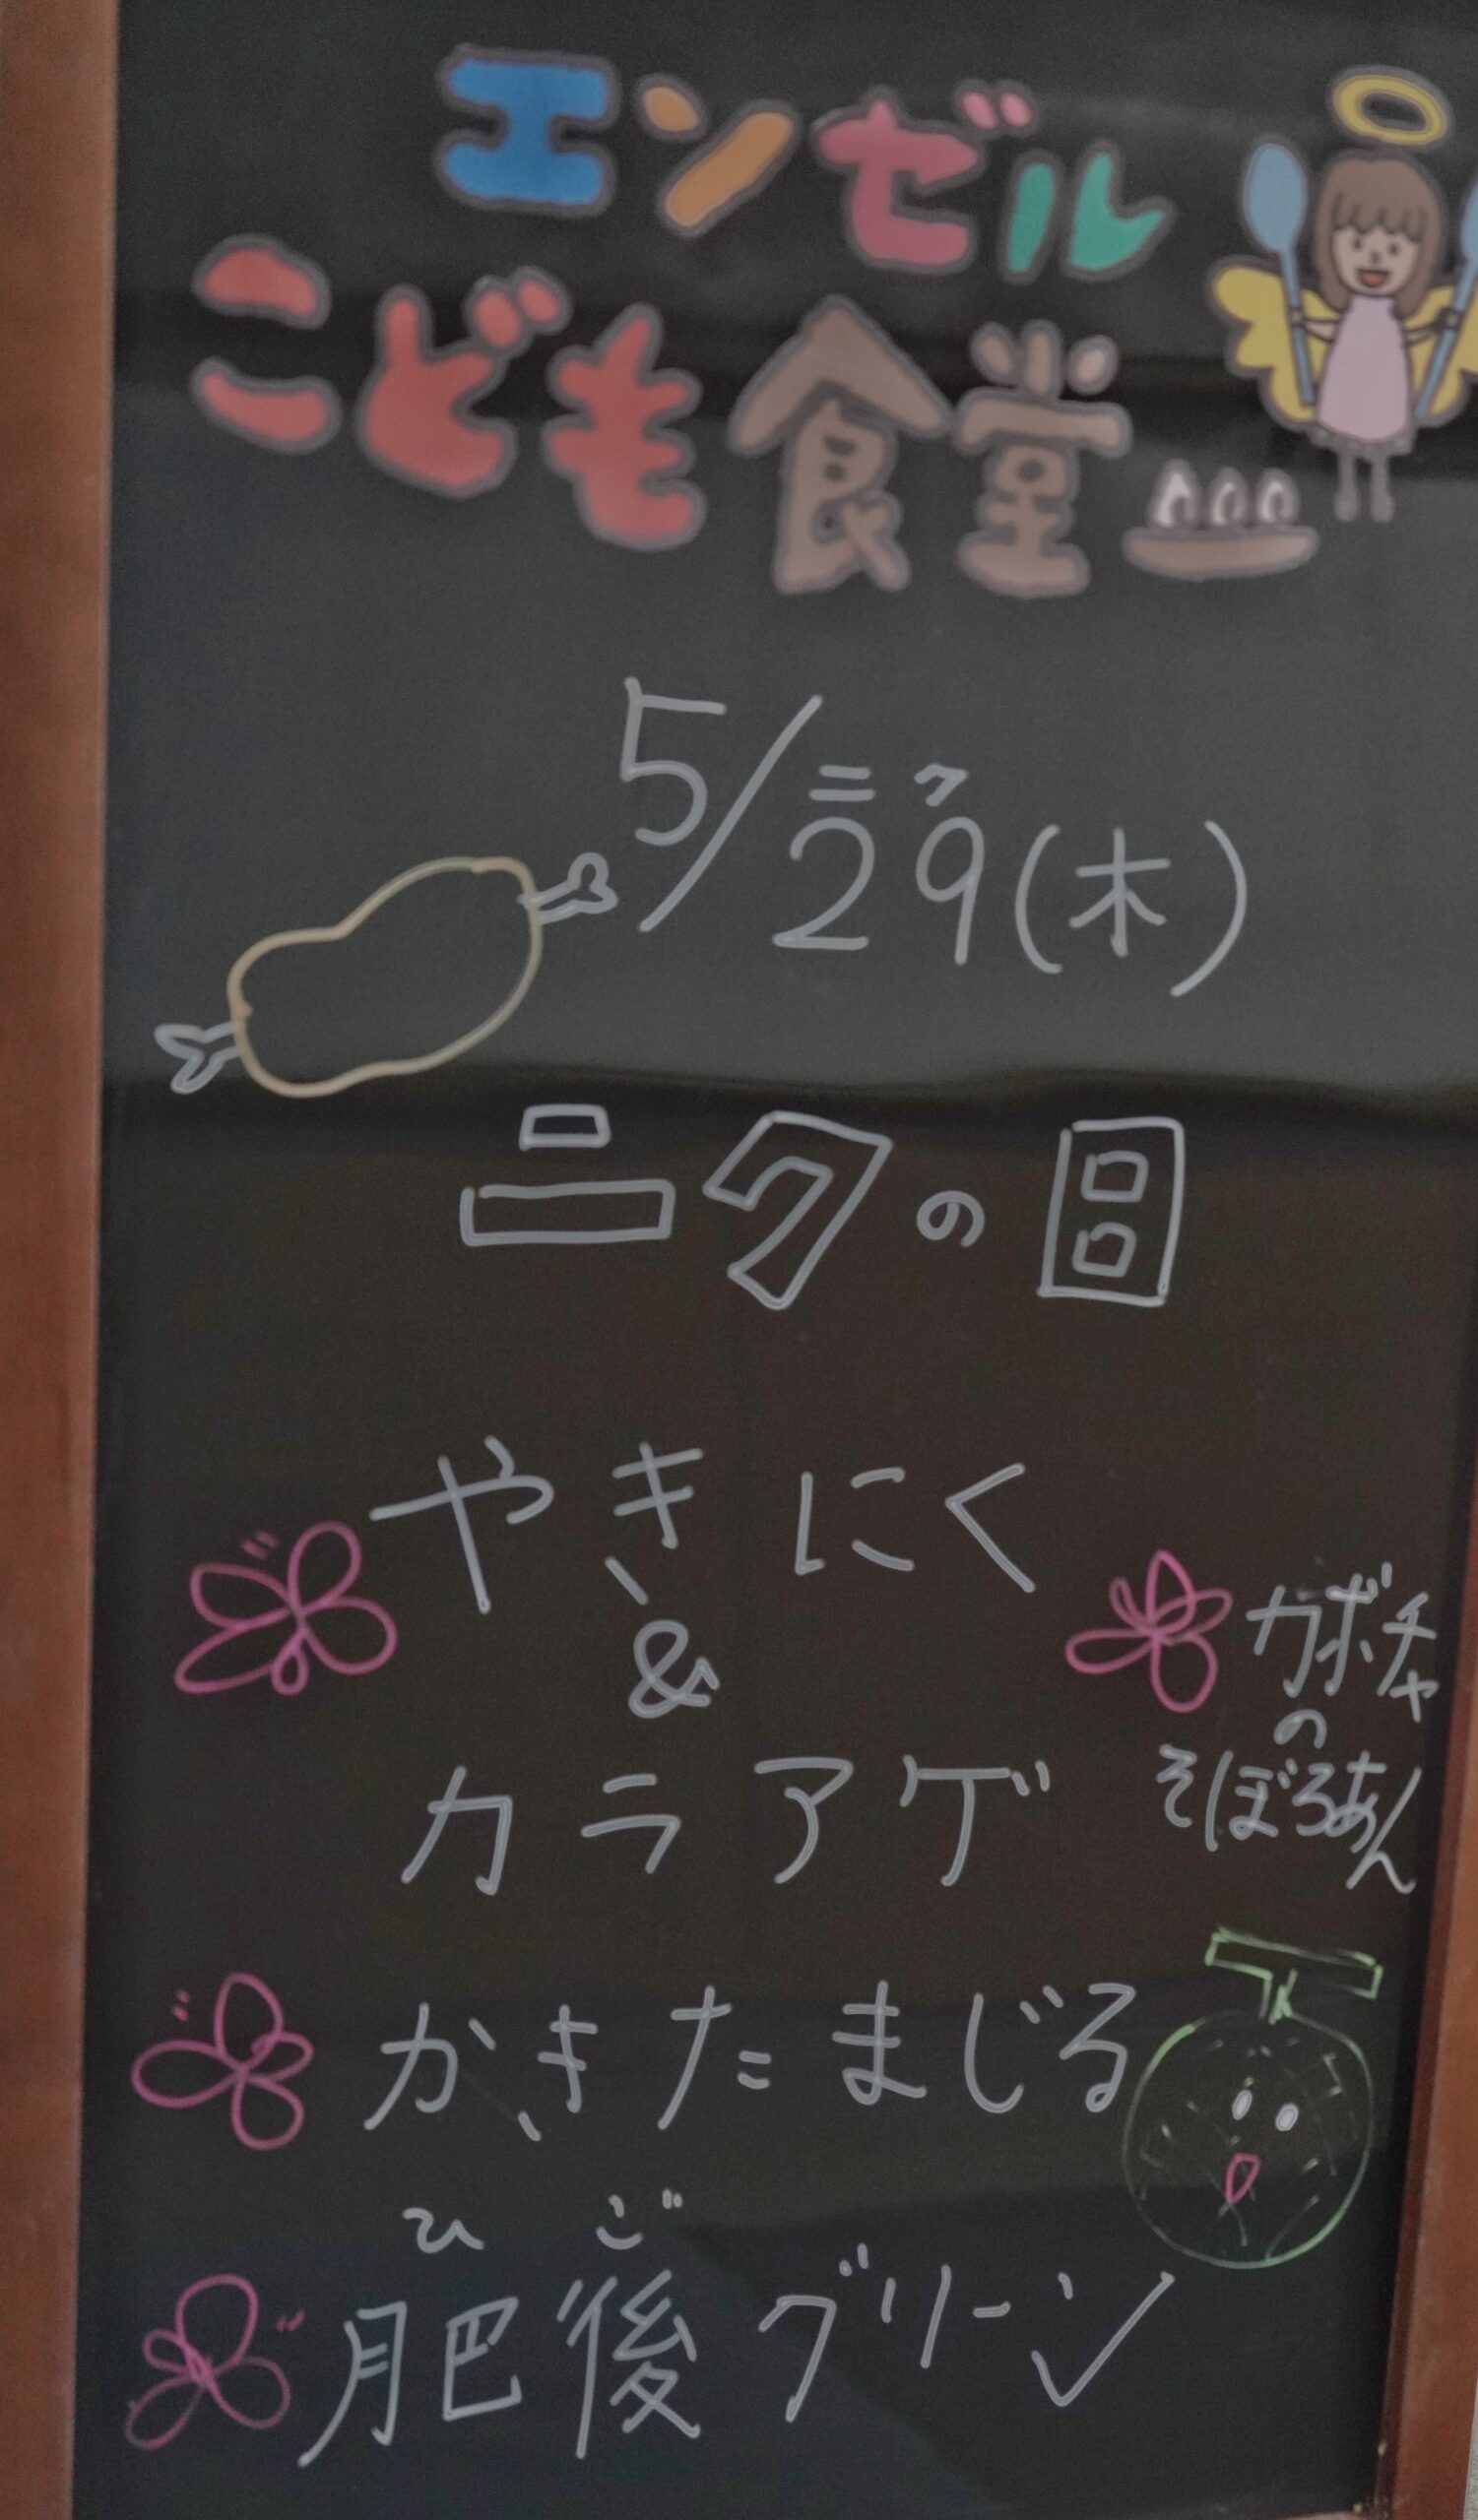 エンゼル
こども食堂
ニク
5/29(木)
ニクの日
やきにく
&
カラアゲ
カボチャ
の
そぼろあん
かきたまじる
ひご
肥後グリーン